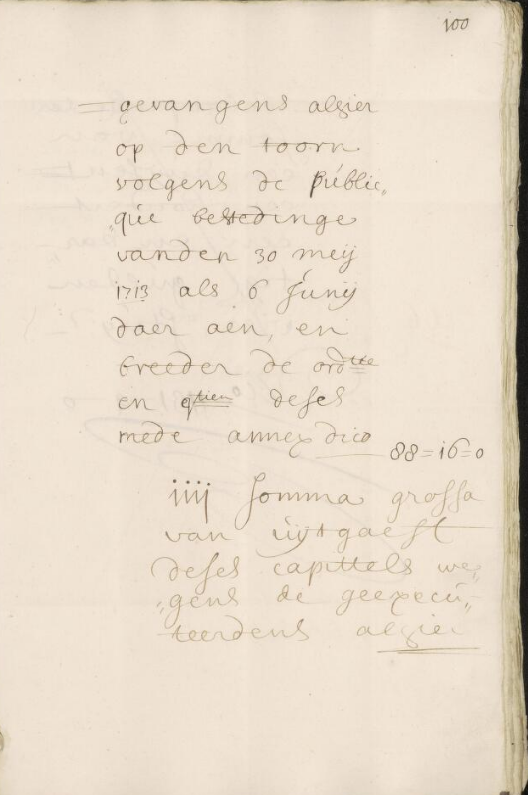 100
gevangens alhier
op den toorn
volgens de públic„
„qúe bestedinge
vanden 30 meij
1713 als 6 júnij
daer aen, en
breeder de ord.tie
en q.tien deses
mede annex dico
88=16=0
iiij Somma grossa
van úijtgaeft
deses capittels we„
„gens de geexecú„
teerdens alhier